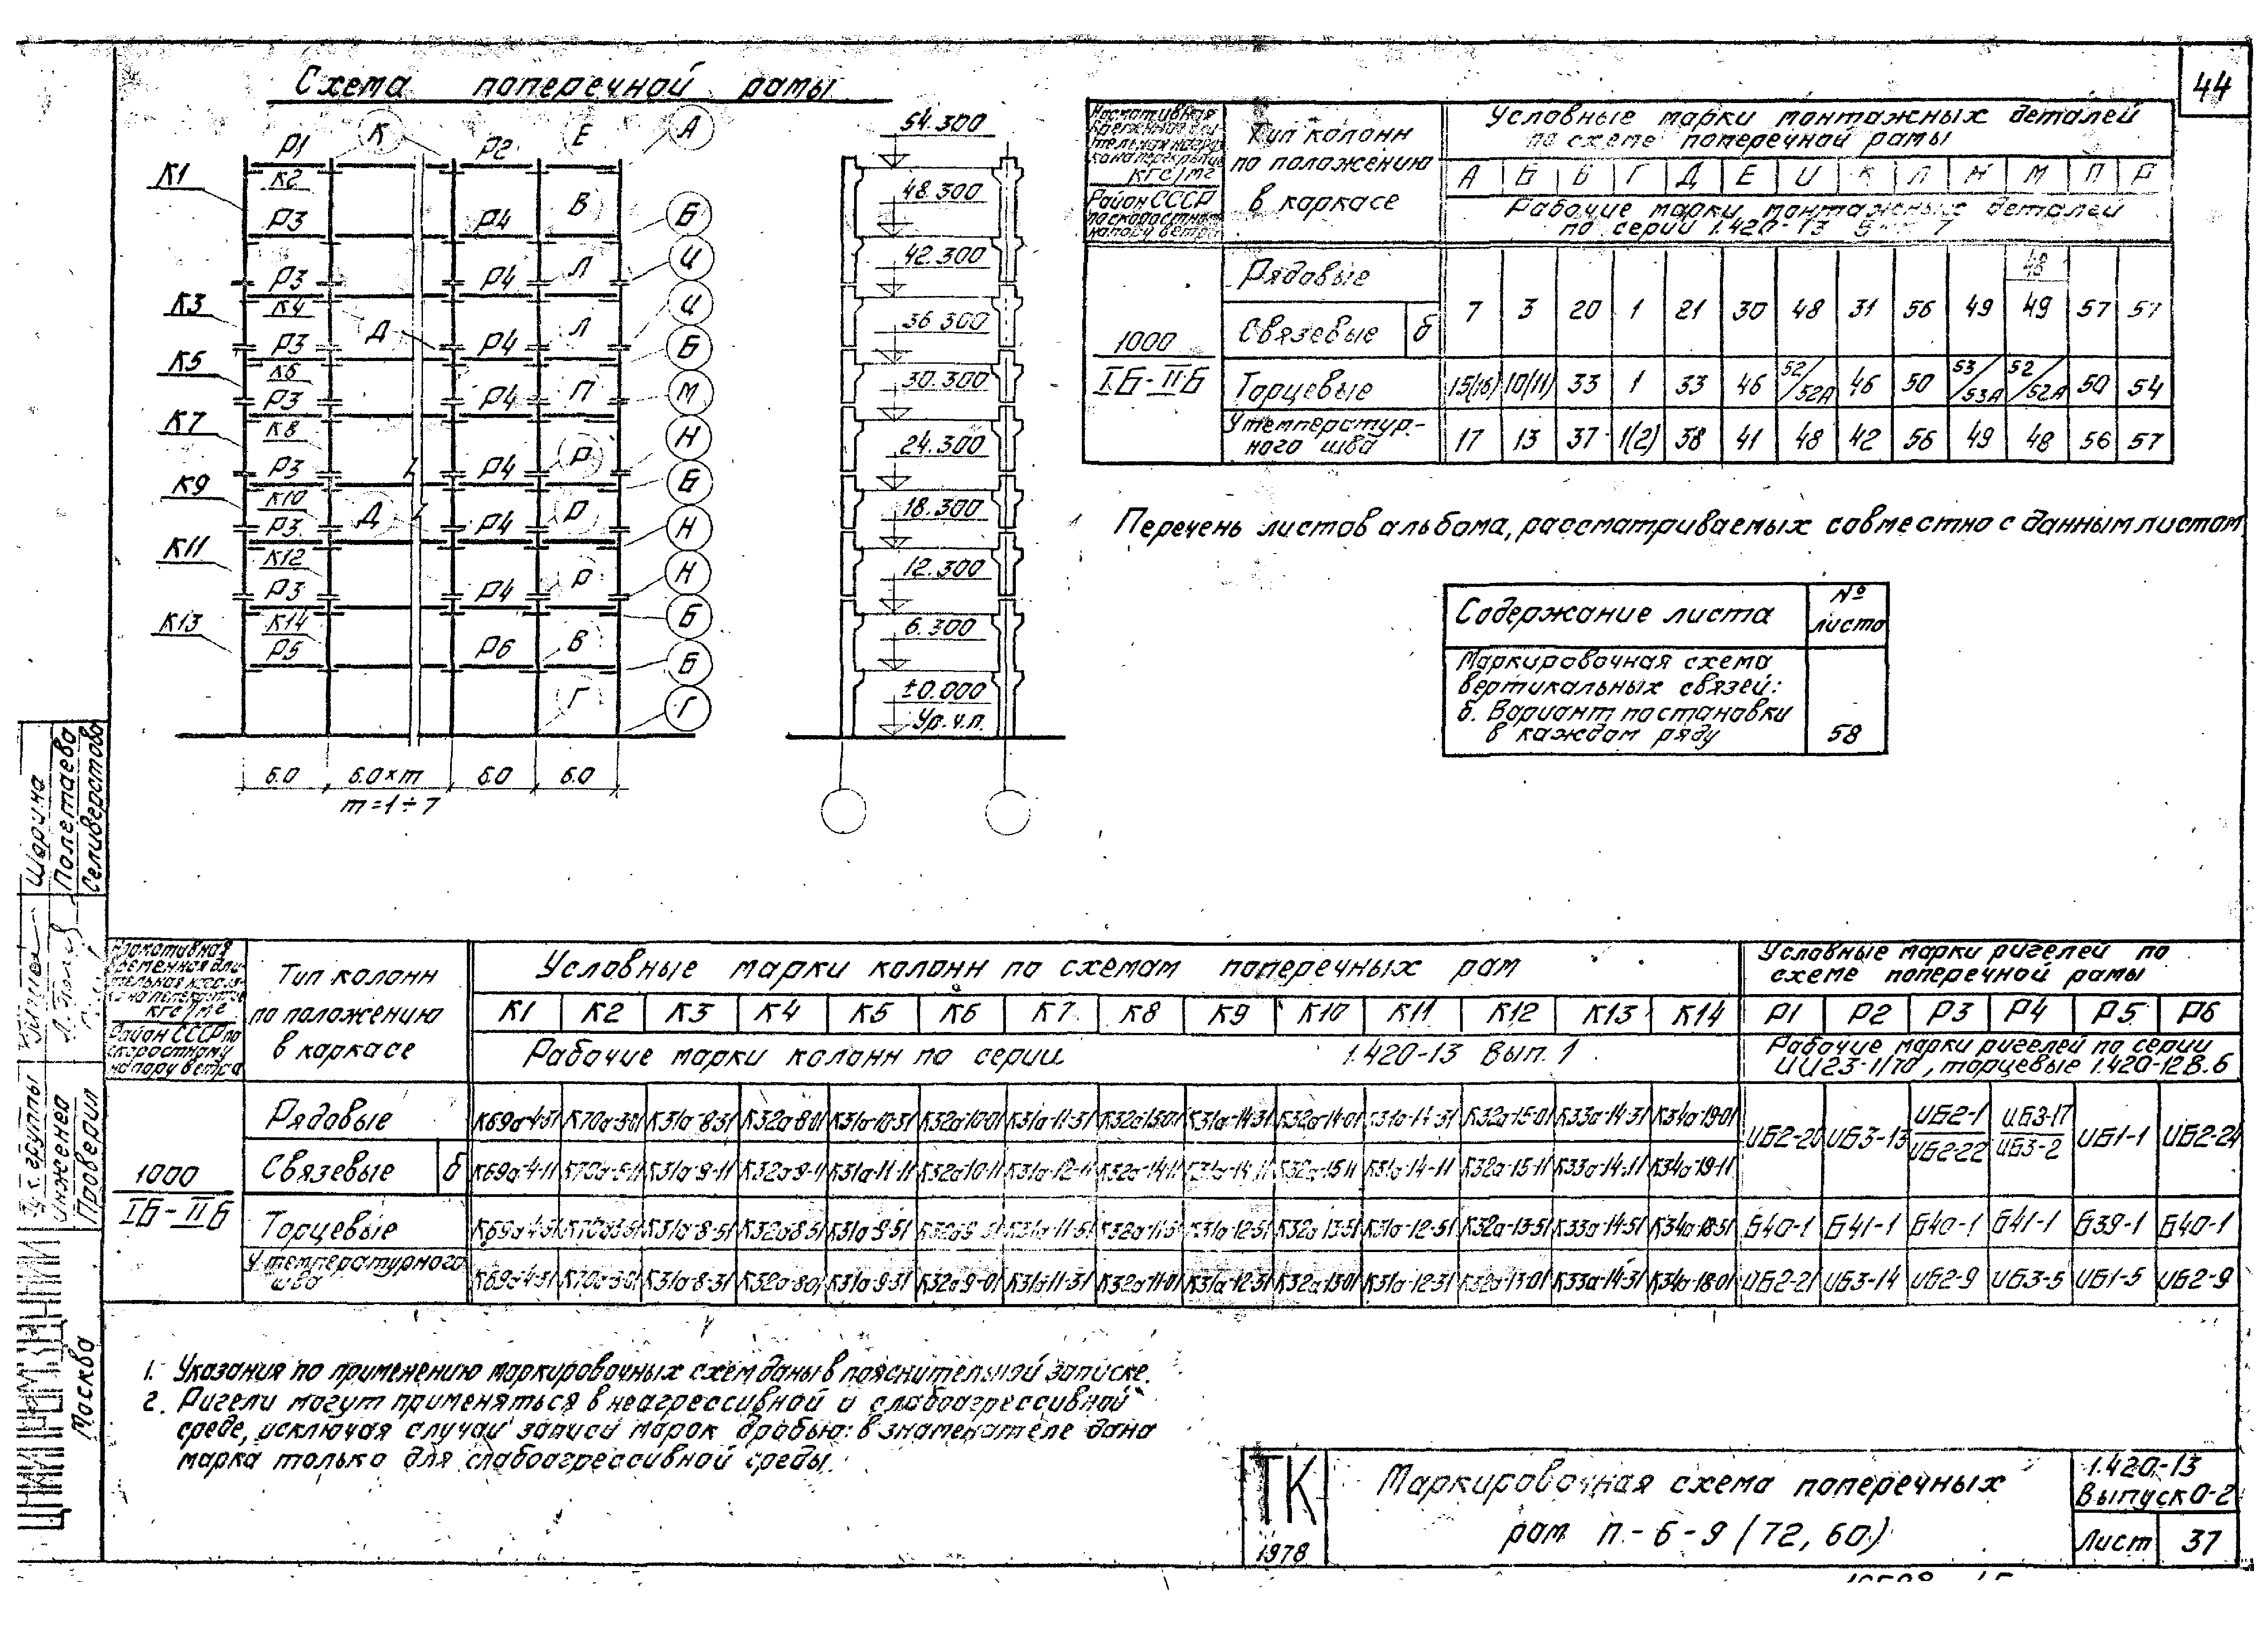 44
Схема поперечной рамы
К Е А
Р1 Р2
К1 К2
В
Р3 Р4 Б
И
Л
Р3 Р4
К3 К4 И
Д Л
Р3 Р4 Б
К5 К6
Р3 Р4 П М
К7 К8 Н
Р3 Р4 Р
К9 К10 Б
Д Р
Р3 Р4 Н
К11 К12
Р3 Р4 Р Н
К13 К14 Б
Р5 Р6 В
Б
Г Г
6.0 6.0×m 6.0 6.0
m=1÷7
54.300
48.300
42.300
36.300
30.300
24.300
18.300
12.300
6.300
±0.000
Ур.ч.п.
кгс/м2
Район СССР
по скоростному
напору ветра
Тип колонн
по положению
в каркасе
Условные марки монтажных деталей
по схеме поперечной рамы
А Б Г Д Е И К Л Н М П Р
Рабочие марки монтажных деталей
по серии 1.420-13 7
1000
IБ-IIБ
Рядовые
Связевые б
7 3 20 1 21 30 48 31 56 49 48/49 57 57
Торцевые 15(16) 10(11) 33 1 33 46 52/52А 46 50 53/53А 52/52А 50 54
У температур-
ного шва 17 13 37 1(2) 38 41 48 42 56 49 48 56 57
Перечень листов альбома, рассматриваемых совместно с данным листом
Содержание листа № листа
Маркировочная схема
вертикальных связей:
б. Вариант постановки
в каждом ряду 58
кгс/м2
Район СССР по
скоростному
напору ветра
Тип колонн
по положению
в каркасе
Условные марки колонн по схемам поперечных рам
К1 К2 К3 К4 К5 К6 К7 К8 К9 К10 К11 К12 К13 К14
Рабочие марки колонн по серии 1.420-13 Вып. 1
Условные марки ригелей по
схеме поперечной рамы
Р1 Р2 Р3 Р4 Р5 Р6
Рабочие марки ригелей по серии
ИИ23-1/70, торцевые 1.420-12 В.6
1000
IБ-IIБ
Рядовые К69а-4-31 К31а-8-31 К32а-8-01 К31а-10-31 К32а-10-01 К31а-11-31 К32а-13-01 К31а-14-31 К32а-14-01 К32а-15-01 К33а-14-31 К34а-19-01
Связевые б К69а-4-11 К31а-9-11 К32а-9-11 К31а-11-11 К32а-10-11 К31а-12-11 К32а-14-11 К31а-14-11 К32а-15-11 К31а-14-11 К32а-15-11 К33а-14-11 К34а-19-11
ИБ2-20 ИБ3-13 ИБ2-1/ИБ2-22 ИБ3-17/ИБ3-2 ИБ1-1 ИБ2-24
Торцевые К31а-8-51 К32а-8-51 К31а-9-51 К31а-11-51 К31а-12-51 К32а-13-51 К31а-12-51 К32а-13-51 К33а-14-51 К34а-18-51 Б40-1 Б41-1 Б40-1 Б41-1 Б39-1 Б40-1
У температурного
шва К69а-4-31 К31а-8-31 К32а-8-01 К31а-9-31 К32а-9-01 К31а-11-31 К32а-11-01 К31а-12-31 К32а-13-01 К31а-12-31 К32а-13-01 К33а-14-31 К34а-18-01 ИБ2-21 ИБ3-14 ИБ2-9 ИБ3-5 ИБ1-5 ИБ2-9
1. Указания по применению маркировочных схем даны в пояснительной записке.
2. Ригели могут применяться в неагрессивной и слабоагрессивной
среде, исключая случаи записи марок дробью: в знаменателе дана
марка только для слабоагрессивной среды.
ТК
1978
Маркировочная схема поперечных
рам п-6-9 (72, 60)
1.420-13
Выпуск 0-2
Лист 37
Шарина
Полетаева
Селиверстова
группы
инженер
Проверил
ЦНИИПРОМЗДАНИЙ
Москва